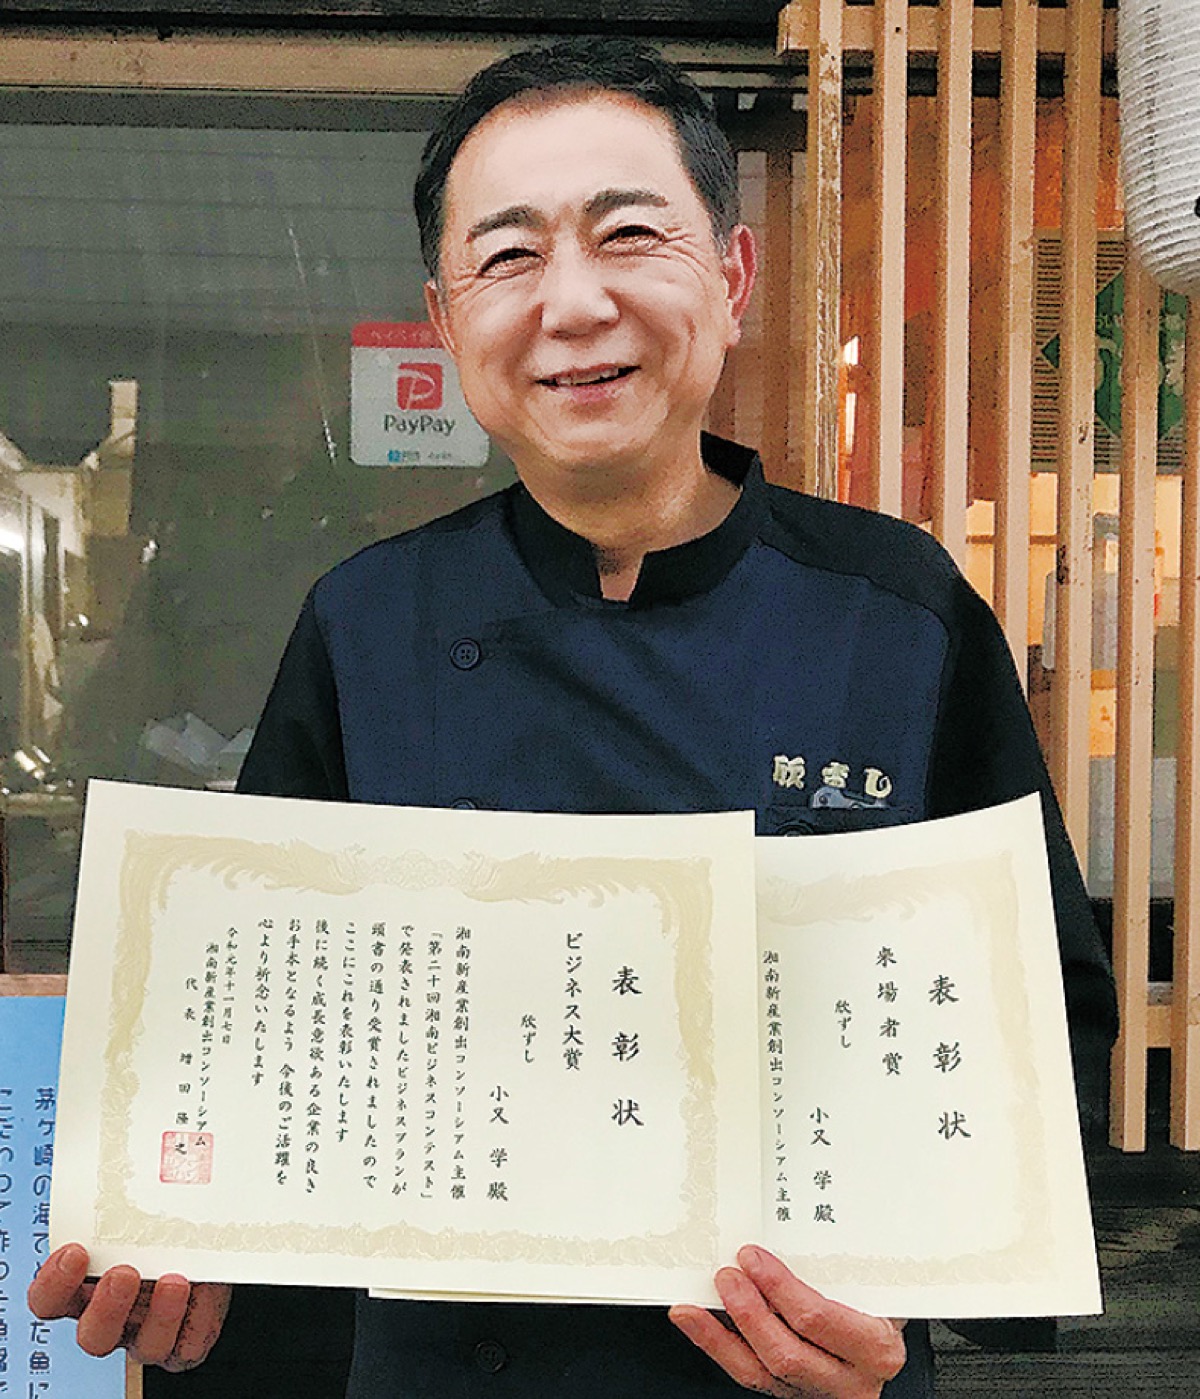 PayPay
欣ずし
表彰状
ビジネス大賞
欣ずし
小又 学 殿
湘南新産業創出コンソーシアム主催
「第二十回湘南ビジネスコンテスト」
で発表されましたビジネスプランが
頭書の通り受賞されましたので
ここにこれを表彰いたします
後に続く成長意欲ある企業の良き
お手本となるよう 今後のご活躍を
心より祈念いたします
令和元年十一月七日
湘南新産業創出コンソーシアム
代表 増田 隆之
表彰状
来場者賞
欣ずし
小又 学 殿
湘南新産業創出コンソーシアム主催
茅ヶ崎の海でとれた魚に